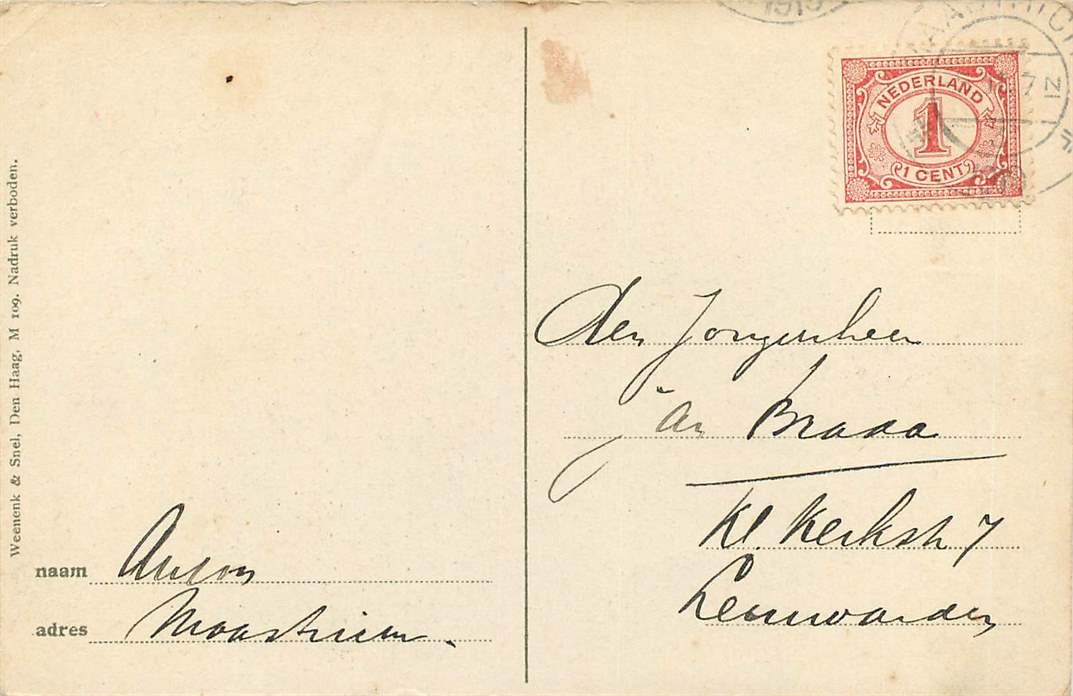 Weenenk & Snel, Den Haag. M 109. Nadruk verboden.
naam Anton
adres
1913
NEDERLAND
1
1 CENT
Den Jongenheer
Jan Braaa
Kl. Kerkstr 7
Leeuwarden